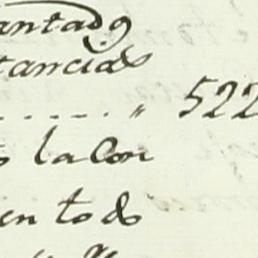 antadas
tancias
. . . . . . " 522
o la Con
en todo